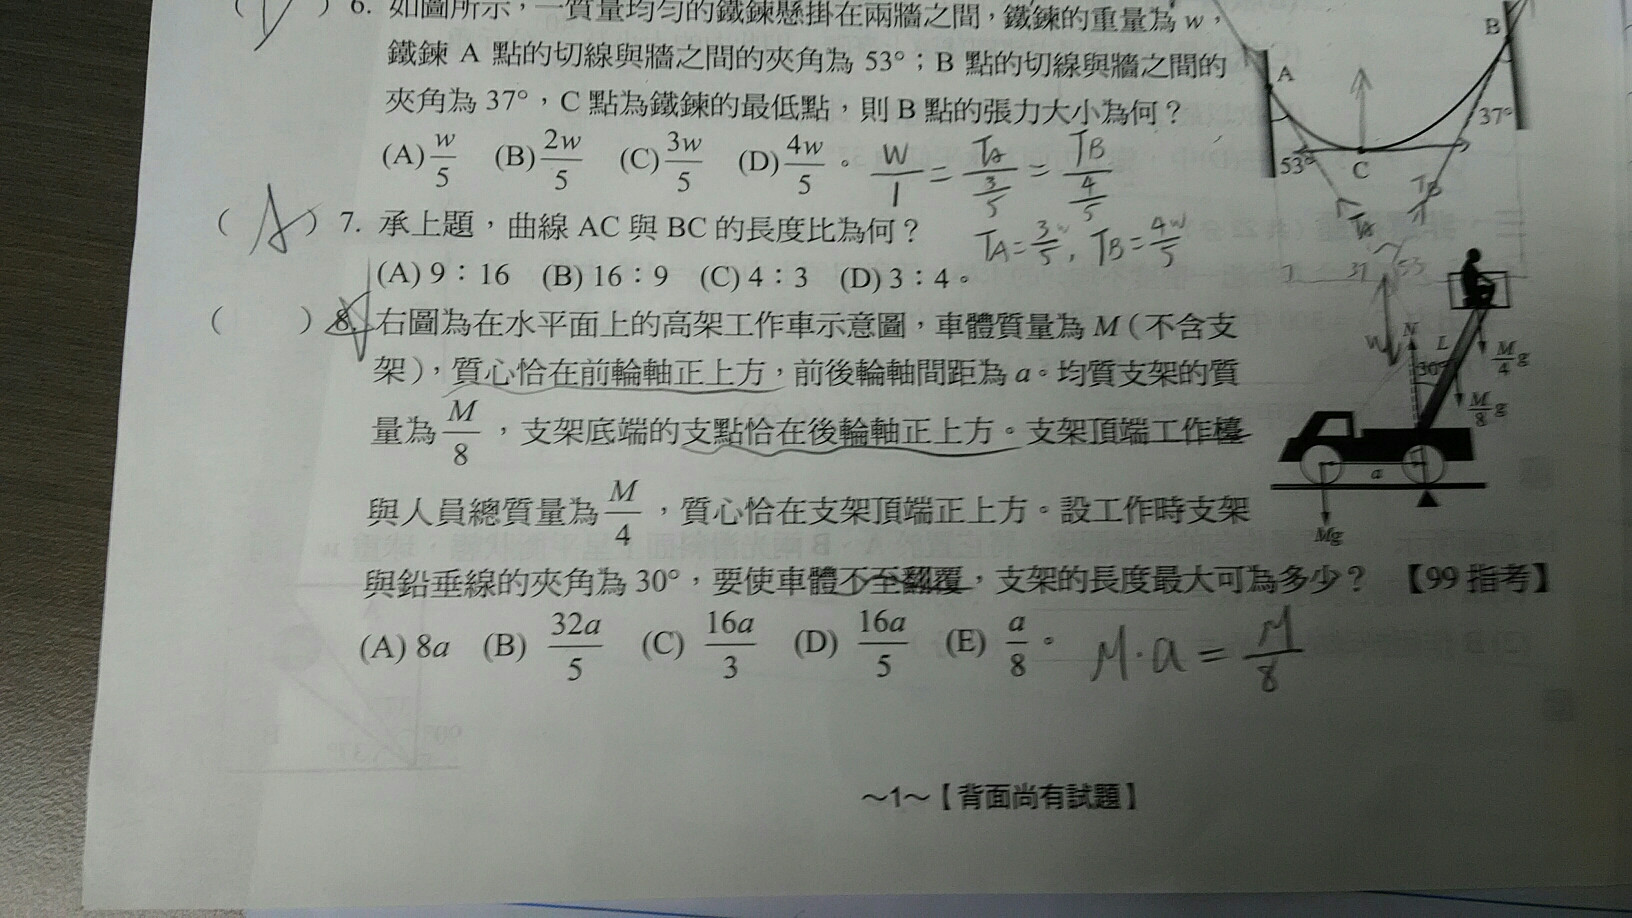 6. 如圖所示，一質量均勻的鐵鍊懸掛在兩牆之間，鐵鍊的重量為 w，
鐵鍊 A 點的切線與牆之間的夾角為 53°；B 點的切線與牆之間的
夾角為 37°，C 點為鐵鍊的最低點，則 B 點的張力大小為何？
(A) w/5 (B) 2w/5 (C) 3w/5 (D) 4w/5 。
W/1 = TA/(3/5) = TB/(4/5)
( A ) 7. 承上題，曲線 AC 與 BC 的長度比為何？
TA=3w/5, TB=4w/5
(A) 9：16 (B) 16：9 (C) 4：3 (D) 3：4。
( ) 8. 右圖為在水平面上的高架工作車示意圖，車體質量為 M（不含支
架），質心恰在前輪軸正上方，前後輪軸間距為 a。均質支架的質
量為 M/8，支架底端的支點恰在後輪軸正上方。支架頂端工作檯
與人員總質量為 M/4，質心恰在支架頂端正上方。設工作時支架
與鉛垂線的夾角為 30°，要使車體不至翻覆，支架的長度最大可為多少？ 【99 指考】
(A) 8a (B) 32a/5 (C) 16a/3 (D) 16a/5 (E) a/8 。
M·a = M/8
A
B
C
53°
37°
TA
TB
37
53
W
N
L
30°
M/4 g
M/8 g
a
Mg
～1～【背面尚有試題】